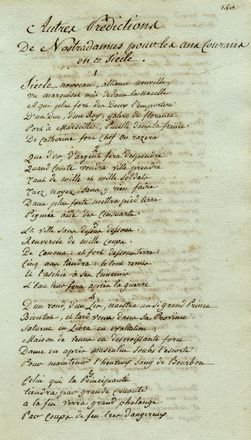 140.
Autres Predictions
De Nostradamus pour les ans Courans
en ce siecle.
1
Siecle nouveau, alliance nouvelle
Un marquisat mis dedans la nacelle
A qui plus fort des deux l'emportera
D'un Duc, d'un Roy, galere de florance
Port à Marseille, Pucelle dans la france
De Catherine fort Chef on razera
2
Que d'or d'argent fera despendre
Quand Comte voudra ville prendre
Tant de mille et mille soldats
Tuez, noyez, sans y rien faire
Dans plus forte mettra pied terre
Pigmée aidé des Censuarts
3
La ville sans dessus dessous
Renversée de mille coups
De canons: et fort dessous terre:
Cinq ans tiendra: le tout remis
Et laschée à ses ennemis
L'eau leur fera après la guerre
4
D'un rond, d'un lis, naistra un si grand Prince
Bientost, et tard venu dans sa Province
Saturne en Libra en exaltation
Maison de Venus en descroissante force
Dame en après masculin soubs l'escorce
Pour maintenir l'heureux sang de Bourbon
5
Celui qui la Principauté
tiendra par grande cruauté
a la fin verra grand phalange
Par coup de feu tres dangereux